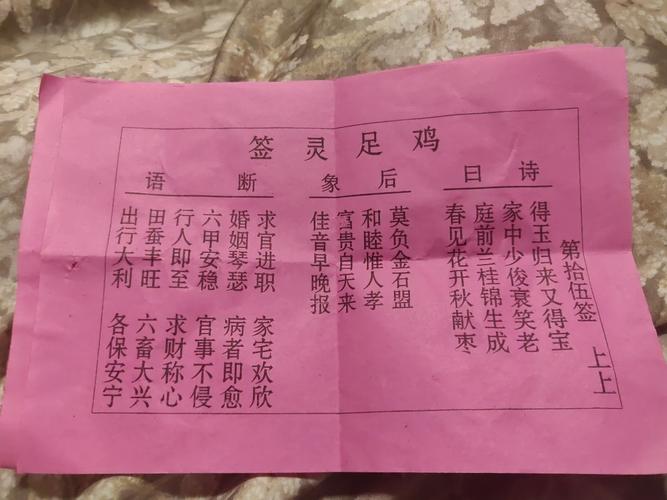 鸡足灵签
第拾伍签 上上
诗曰
得玉归来又得宝
家中少俊衰笑老
庭前兰桂锦生成
春见花开秋献枣
后象
莫负金石盟
和睦惟人孝
富贵自天来
佳音早晚报
断语
求官进职 家宅欢欣
婚姻琴瑟 病者即愈
六甲安稳 官事不侵
行人即至 求财称心
田蚕丰旺 六畜大兴
出行大利 各保安宁